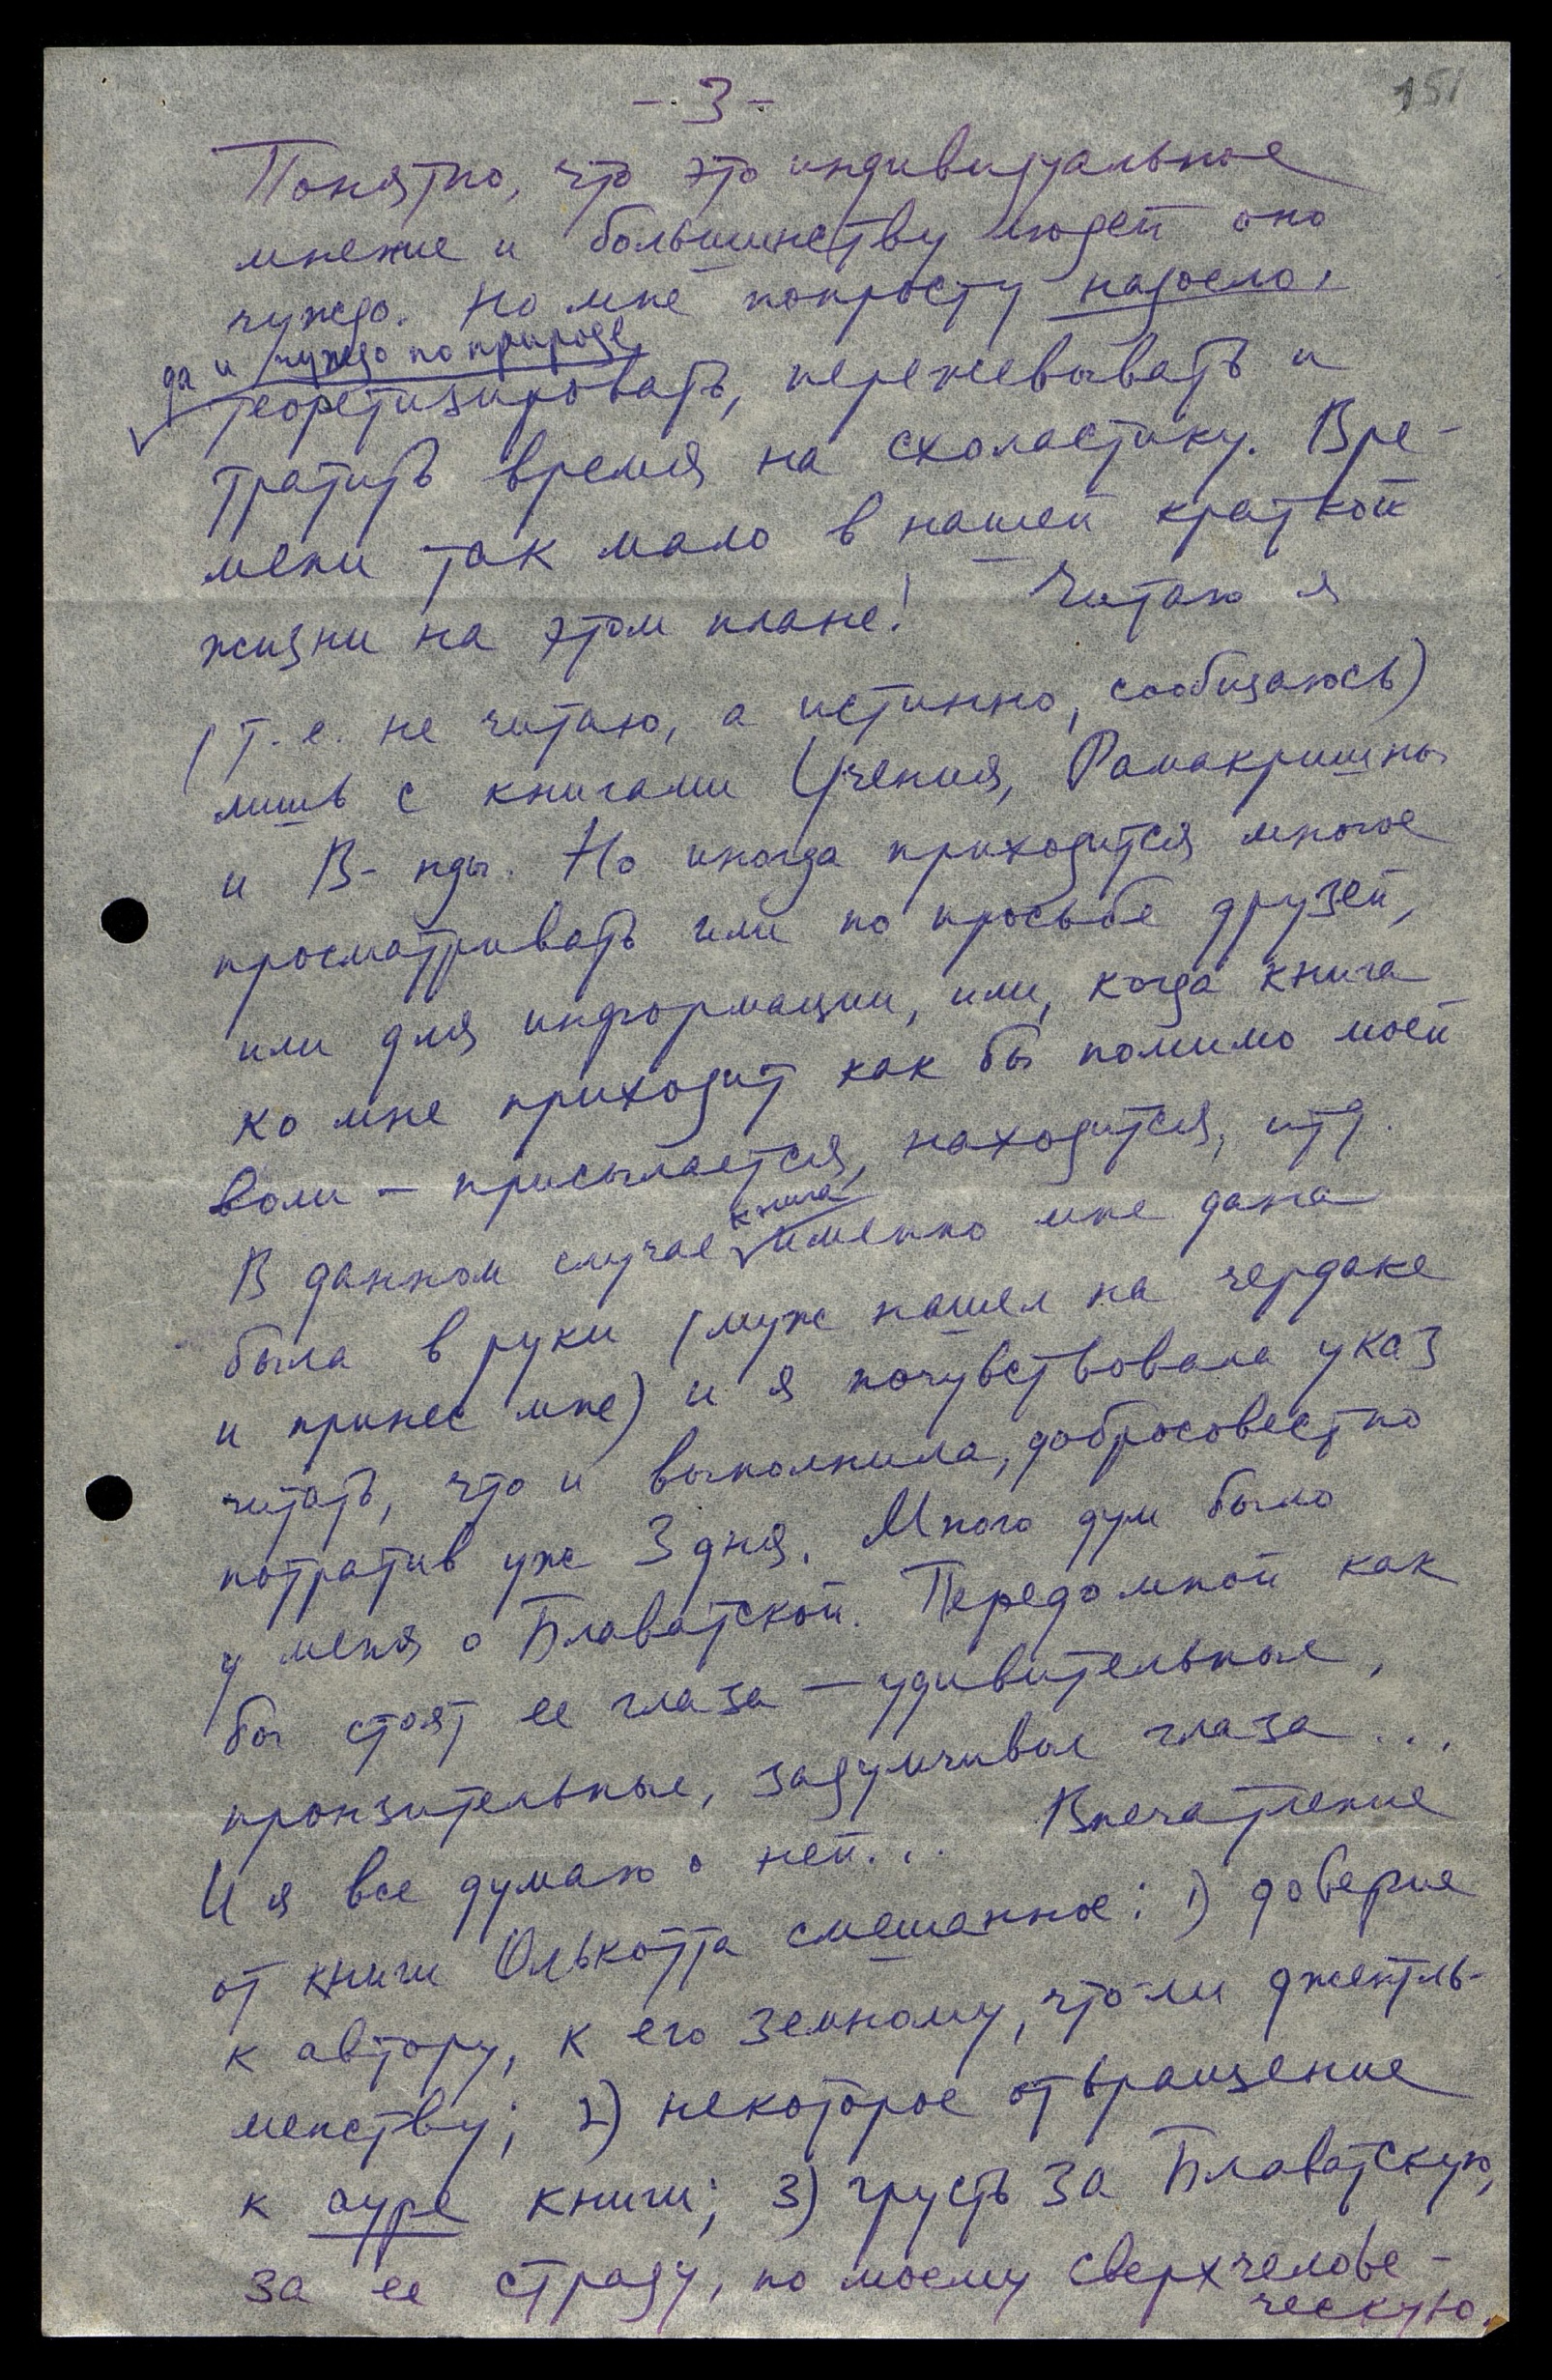 - 3 -
151
Понятно, что это индивидуальное
мнение и большинству людей оно
чуждо. Но мне попросту надоело,
да и чуждо по природе
теоретизировать, пережевывать и
тратить время на схоластику. Вре-
мени так мало в нашей краткой
жизни на этом плане! Читаю я
(т.е. не читаю, а истинно, сообщаюсь)
лишь с книгами Учения, Рамакришны
и В-нды. Но иногда приходится многое
просматривать или по просьбе друзей,
или для информации, или, когда книга
ко мне приходит как бы помимо моей
воли — присылается, находится, итд.
книга
В данном случае именно мне дана
была в руки (муж нашел на чердаке
и принес мне) и я почувствовала указ
читать, что и выполнила, добросовестно
потратив уже 3 дня. Много дум было
у меня о Блаватской. Передо мной как
бы стоят ее глаза — удивительные,
пронзительные, задумчивые глаза...
И я все думаю о ней... Впечатление
от книги Олькотта смешанное: 1) доверие
к автору, к его земному, что-ли джентль-
менству; 2) некоторое отвращение
к ауре книги; 3) грусть за Блаватскую,
за ее страду, по моему сверхчелове-
ческую.